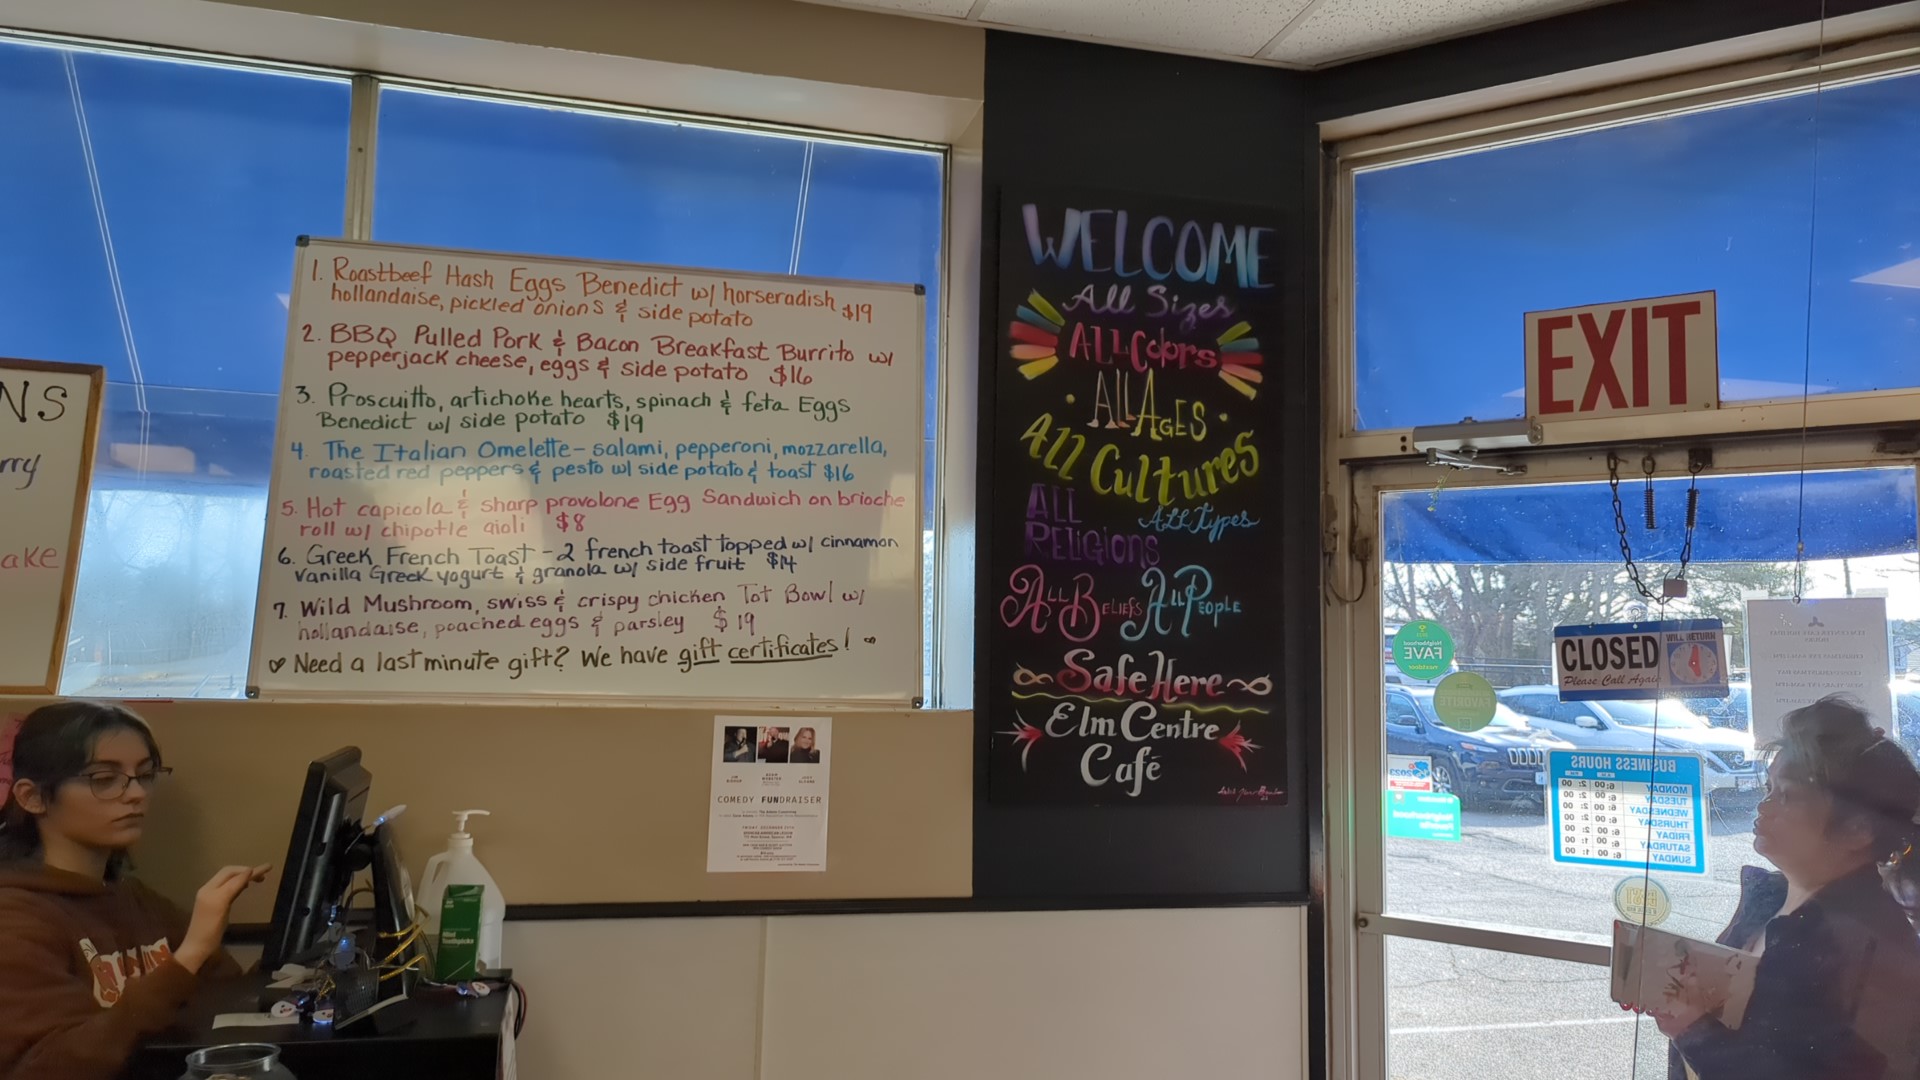 NS
rry
ake
1. Roastbeef Hash Eggs Benedict w/ horseradish
hollandaise, pickled onions & side potato $19
2. BBQ Pulled Pork & Bacon Breakfast Burrito w/
pepperjack cheese, eggs & side potato $16
3. Proscuitto, artichoke hearts, spinach & feta Eggs
Benedict w/ side potato $19
4. The Italian Omelette - salami, pepperoni, mozzarella,
roasted red peppers & pesto w/ side potato & toast $16
5. Hot capicola & sharp provolone Egg Sandwich on brioche
roll w/ chipotle aioli $8
6. Greek French Toast - 2 french toast topped w/ cinnamon
vanilla Greek yogurt & granola w/ side fruit $14
7. Wild Mushroom, swiss & crispy chicken Tot Bowl w/
hollandaise, poached eggs & parsley $19
♡ Need a last minute gift? We have gift certificates!
COMEDY FUNDRAISER
WELCOME
All Sizes
All Colors
All Ages
All Cultures
All Religions
All Types
All Beliefs All People
Safe Here
Elm Centre
Café
EXIT
CLOSED
Please Call Again
WILL RETURN
Neighborhood
FAVE
nextdoor
FAVORITE
2023
BUSINESS HOURS
MONDAY 6:00 2:00
TUESDAY 6:00 2:00
WEDNESDAY 6:00 2:00
THURSDAY 6:00 2:00
FRIDAY 6:00 2:00
SATURDAY 6:00 1:00
SUNDAY 6:00 1:00
BEST
Mint
Toothpicks